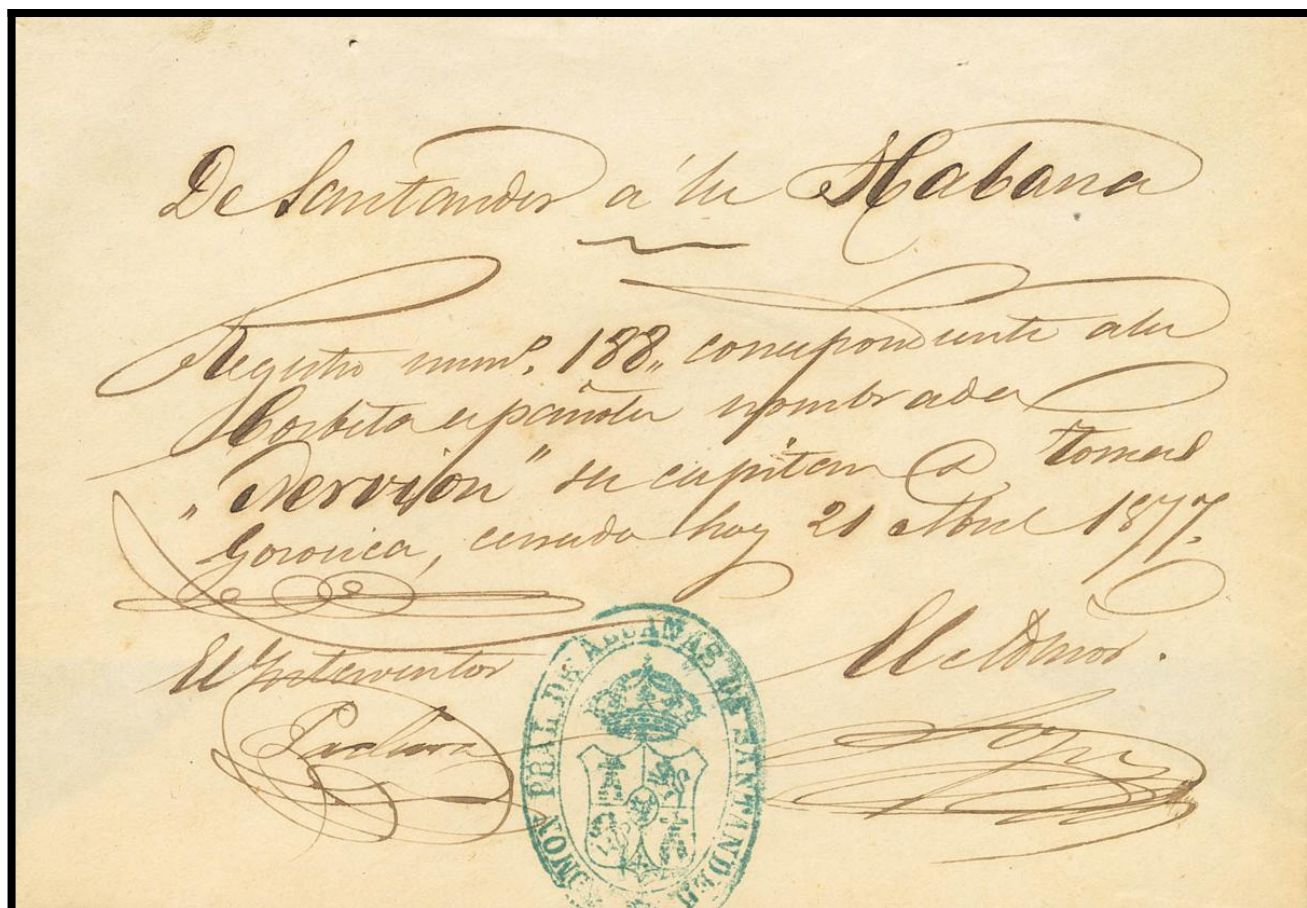 De Santander a la Habana
Registro numº. 188,, correspondiente a la
Corbeta española nombrada
"Nervion" su capitan D. Tomas
Goronica, cerrado hoy 21 Abril 1877.
El Interventor
El Admor.
ADMON PRAL DE ADUANAS DE SANTANDER